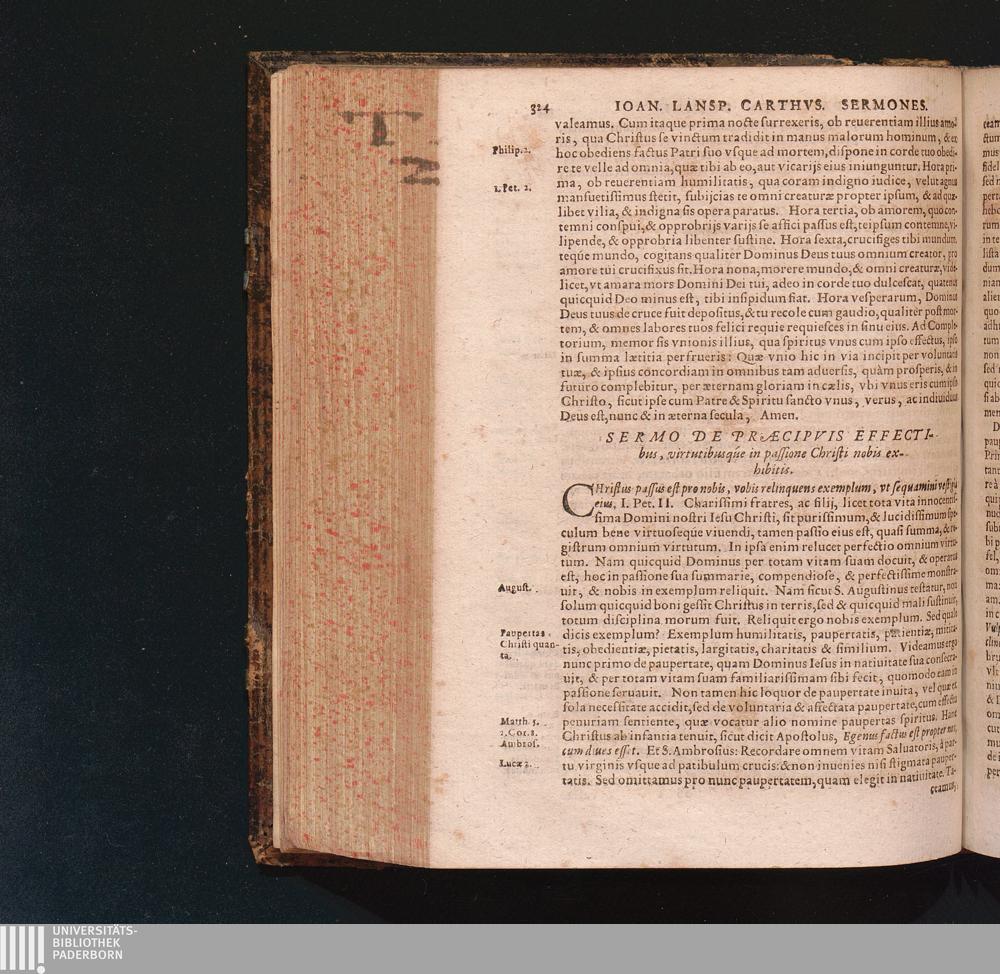 324 IOAN. LANSP. CARTHVS. SERMONES.
valeamus. Cum itaque prima nocte surrexeris, ob reuerentiam illius amo-
ris, qua Christus se vinctum tradidit in manus malorum hominum, & ex
Philip. 2.
hoc obediens factus Patri suo vsque ad mortem, dispone in corde tuo obedi-
re te velle ad omnia, quæ tibi ab eo, aut vicarijs eius iniunguntur. Hora pri-
1. Pet. 2.
ma, ob reuerentiam humilitatis, qua coram indigno iudice, velut agnus
mansuetissimus stetit, subijcias te omni creaturæ propter ipsum, & ad quæ-
libet vilia, & indigna sis opera paratus. Hora tertia, ob amorem, quo con-
temni conspui, & opprobrijs varijs se affici passus est, teipsum contemne, vi-
lipende, & opprobria libenter sustine. Hora sexta, crucifiges tibi mundum,
teq́ue mundo, cogitans qualiter Dominus Deus tuus omnium creator, pro
amore tui crucifixus sit. Hora nona, morere mundo, & omni creaturæ, vide-
licet, vt amara mors Domini Dei tui, adeo in corde tuo dulcescat, quatenus
quicquid Deo minus est, tibi insipidum fiat. Hora vesperarum, Dominus
Deus tuus de cruce fuit depositus, & tu recole cum gaudio, qualiter post mor-
tem, & omnes labores tuos felici requie requiesces in sinu eius. Ad Comple-
torium, memor sis vnionis illius, qua spiritus vnus cum ipso effectus, ipso
in summa lætitia perfrueris: Quæ vnio hic in via incipit per voluntatis
tuæ, & ipsius concordiam in omnibus tam aduersis, quàm prosperis, & in
futuro complebitur, per æternam gloriam in cælis, vbi vnus eris cum ipso
Christo, sicut ipse cum Patre & Spiritu sancto vnus, verus, ac indiuiduus
Deus est, nunc & in æterna secula, Amen.
SERMO DE PRÆCIPVIS EFFECTI-
bus, virtutibusq́ue in passione Christi nobis ex-
hibitis.
CHristus passus est pro nobis, vobis relinquens exemplum, vt sequamini vestigia
eius, I. Pet. II. Charissimi fratres, ac filij, licet tota vita innocentis-
sima Domini nostri Iesu Christi, sit purissimum, & lucidissimum spe-
culum bene virtuoseq́ue viuendi, tamen passio eius est, quasi summa, & re-
gistrum omnium virtutum. In ipsa enim relucet perfectio omnium virtu-
tum. Nam quicquid Dominus per totam vitam suam docuit, & operatus
est, hoc in passione sua summarie, compendiose, & perfectissime monstra-
August.
uit, & nobis in exemplum reliquit. Nam sicut S. Augustinus testatur, non
solum quicquid boni gessit Christus in terris, sed & quicquid mali sustinuit,
totum disciplina morum fuit. Reliquit ergo nobis exemplum. Sed quale
Paupertas
Christi quan-
ta.
dicis exemplum? Exemplum humilitatis, paupertatis, patientiæ, mitita-
tis, obedientiæ, pietatis, largitatis, charitatis & similium. Videamus ergo
nunc primo de paupertate, quam Dominus Iesus in natiuitate sua consecra-
uit, & per totam vitam suam familiarissimam sibi fecit, quomodo eam in
passione seruauit. Non tamen hic loquor de paupertate inuita, vel quæ ex
sola necessitate accidit, sed de voluntaria & affectata paupertate, cum effectu
Matth. 5.
penuriam sentiente, quæ vocatur alio nomine paupertas spiritus. Hanc
2. Cor. 8.
Christus ab infantia tenuit, sicut dicit Apostolus, Egenus factus est propter nos,
Ambros.
cum diues esset. Et S. Ambrosius: Recordare omnem vitam Saluatoris, à par-
Lucæ 2.
tu virginis vsque ad patibulum crucis: & non inuenies nisi stigmata pauper-
tatis. Sed omittamus pro nunc paupertatem, quam elegit in natiuitate. Ta-
ceamus,
UNIVERSITÄTS-
BIBLIOTHEK
PADERBORN